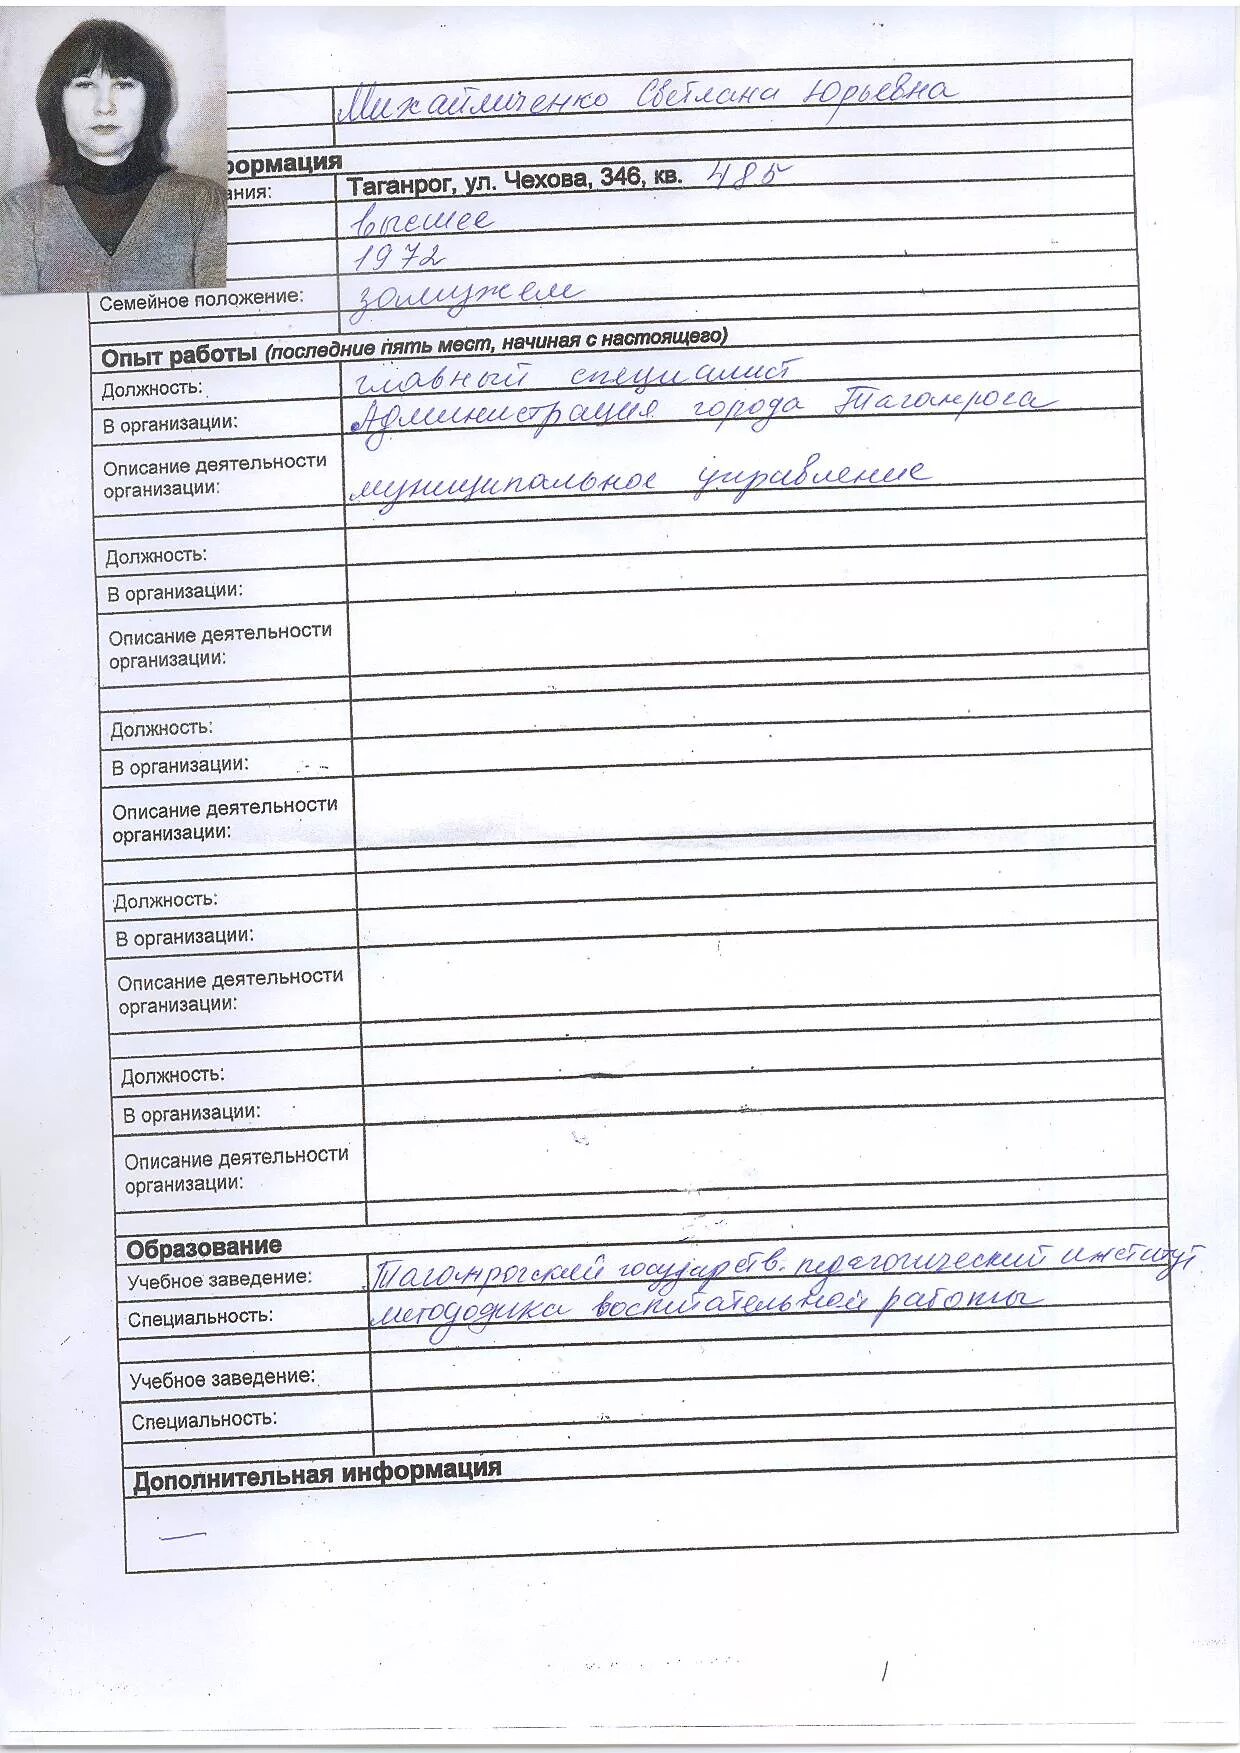 Михайличенко Светлана Юрьевна
формация
ания: Таганрог, ул. Чехова, 346, кв. 485
высшее
1972
Семейное положение: замужем
Опыт работы (последние пять мест, начиная с настоящего)
Должность: главный специалист
В организации: Администрация города Таганрога
Описание деятельности
организации: муниципальное управление
Должность:
В организации:
Описание деятельности
организации:
Должность:
В организации:
Описание деятельности
организации:
Должность:
В организации:
Описание деятельности
организации:
Должность:
В организации:
Описание деятельности
организации:
Образование
Учебное заведение: Таганрогский государств. педагогический институт
Специальность: методика воспитательной работы
Учебное заведение:
Специальность:
Дополнительная информация
—